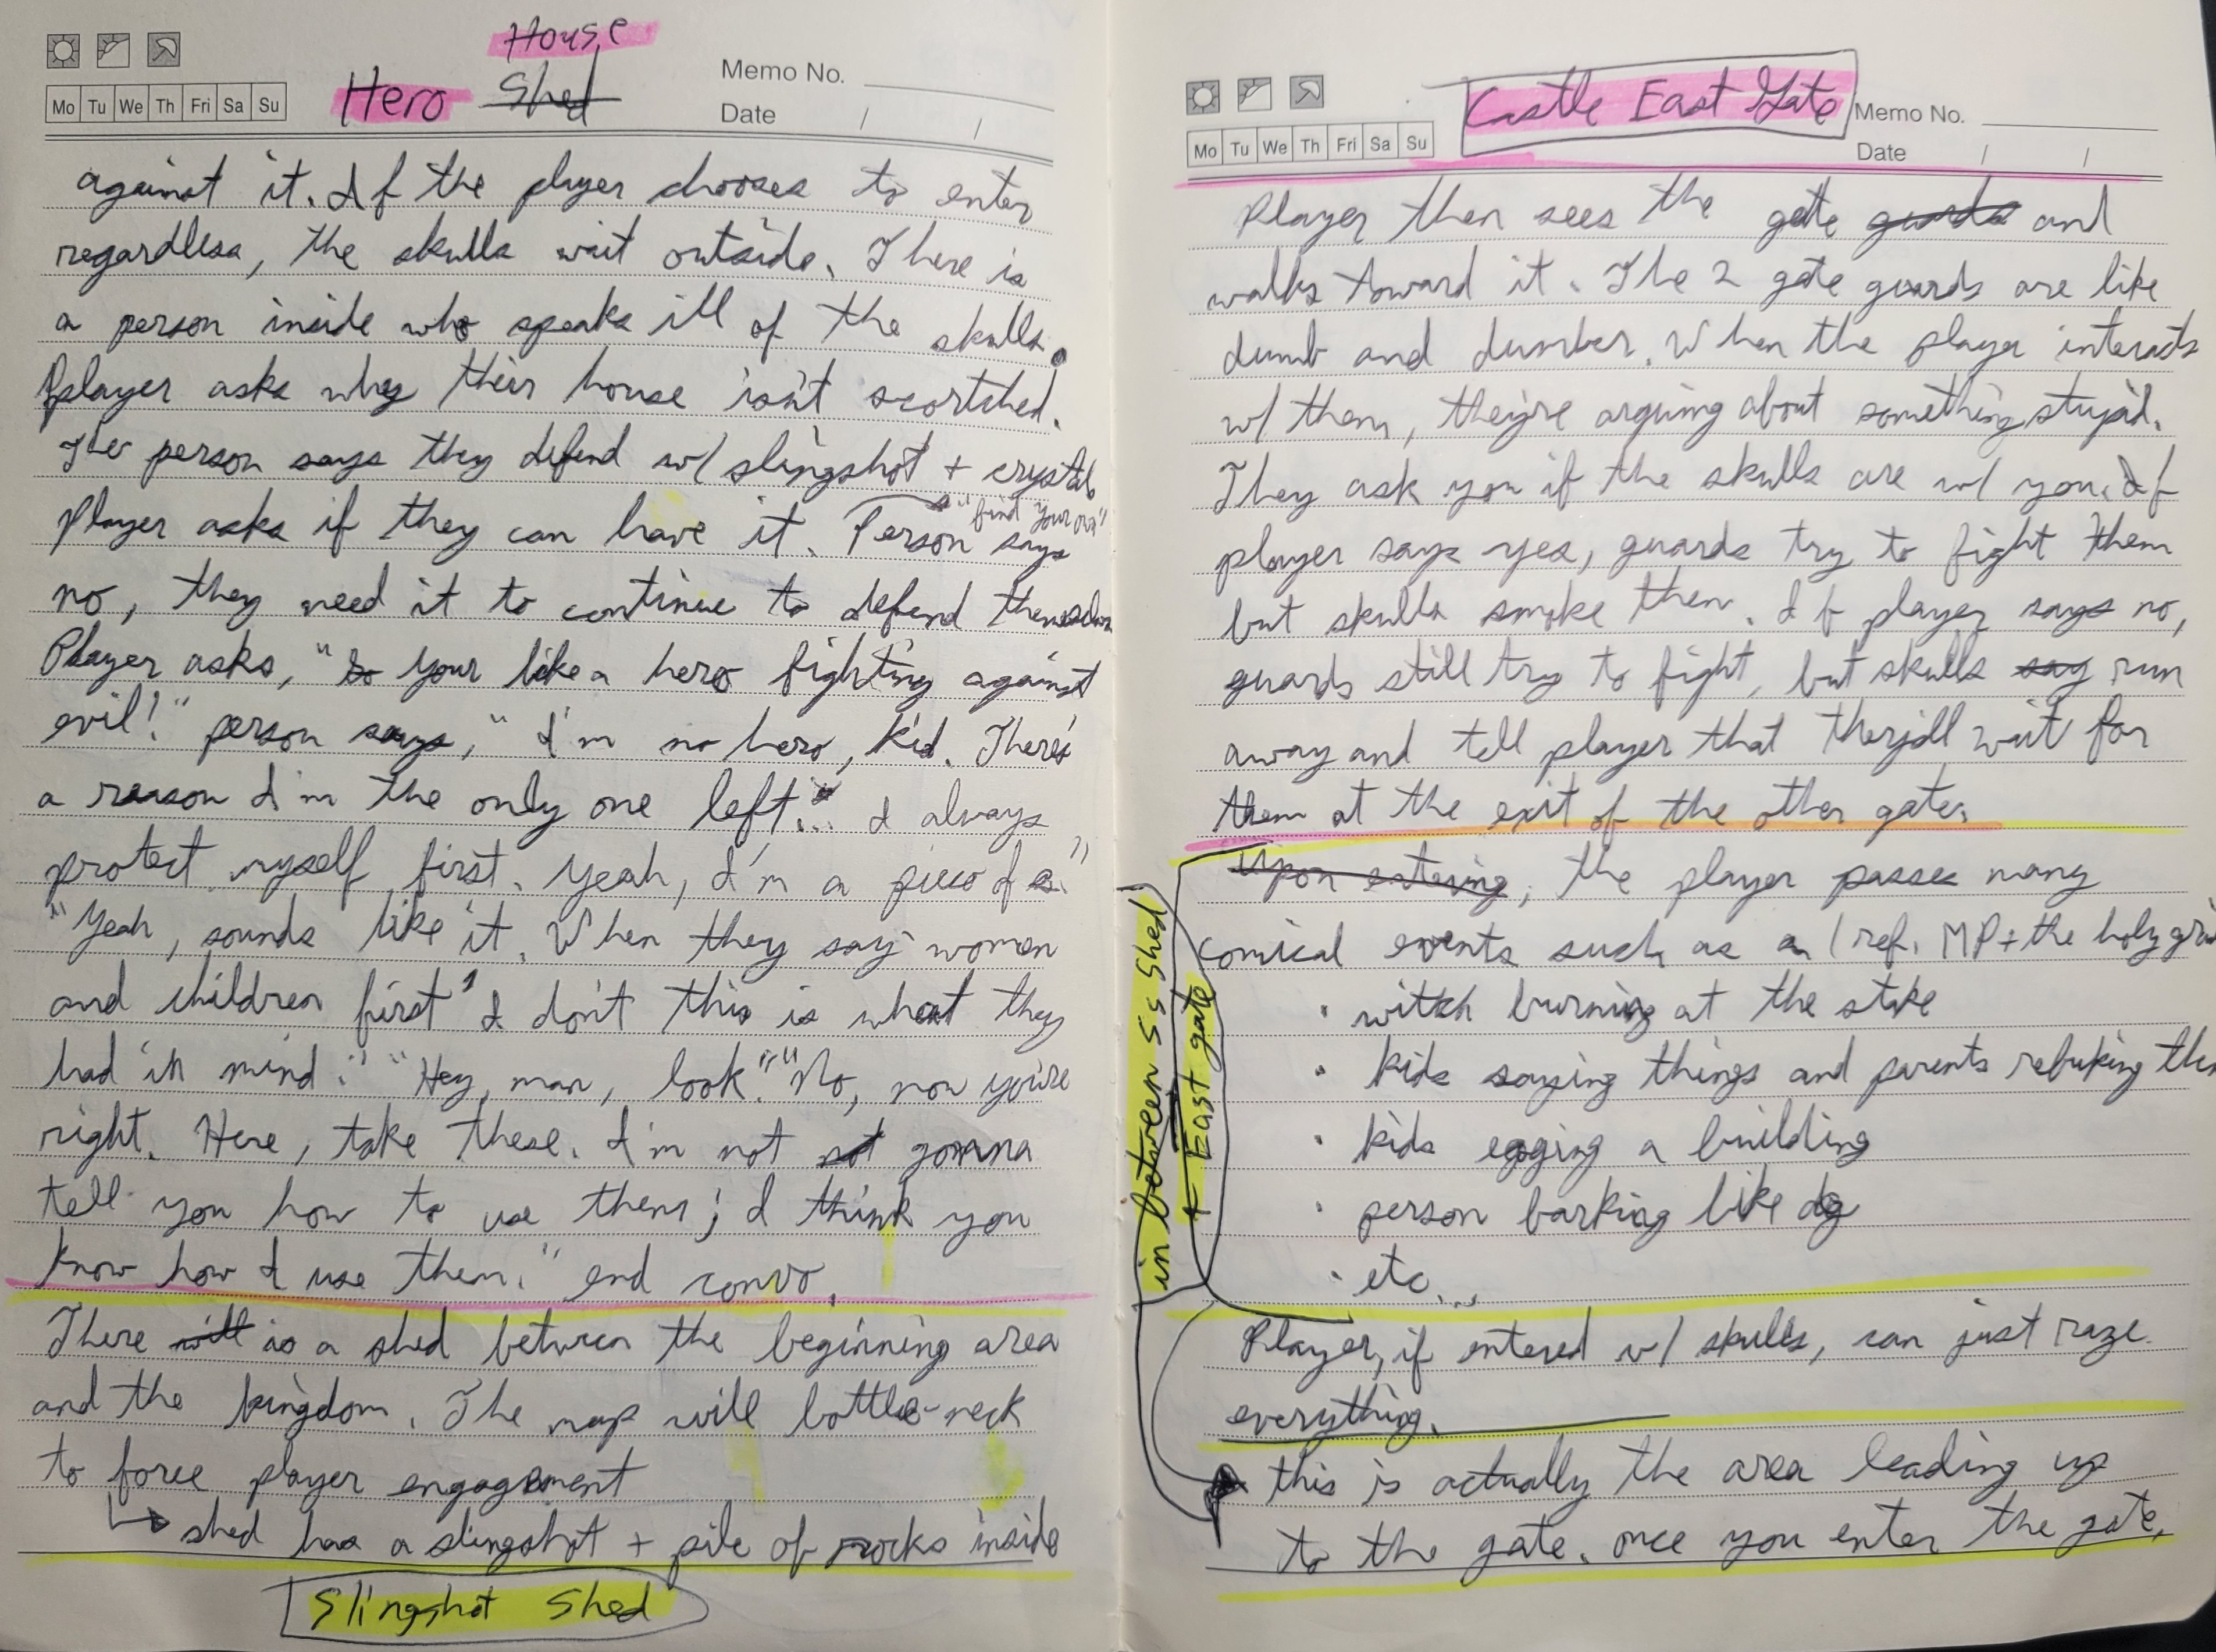 House
Hero Shed
Memo No.
Date / /
Mo Tu We Th Fri Sa Su
against it. If the player chooses to enter
regardless, the skulls wait outside. There is
a person inside who speaks ill of the skulls.
Player asks why their house isn't scortched.
The person says they defend w/ slingshot + crystals
"find your own"
Player asks if they can have it. Person says
no, they need it to continue to defend themselves
Player asks, "so your like a hero fighting against
evil!" person says, "I'm no hero, kid. There's
a reason I'm the only one left... I always
protect myself first. Yeah, I'm a piece of s."
"Yeah, sounds like it. When they say women
and children first' I don't this is what they
had in mind." "Hey, man, look." "No, now you're
right. Here, take these. I'm not not gonna
tell you how to use them; I think you
know how I use them." end convo.
There will is a shed between the beginning area
and the kingdom. The map will bottle-neck
to force player engagement
↳ shed has a slingshot + pile of rocks inside
Slingshot Shed
Castle East Gate
Memo No.
Date / /
Mo Tu We Th Fri Sa Su
Player then sees the gate guards and
walks toward it. The 2 gate guards are like
dumb and dumber. When the player interacts
w/ them, they're arguing about something stupid.
They ask you if the skulls are w/ you. If
player says yes, guards try to fight them
but skulls smoke them. If player says no,
guards still try to fight, but skulls say run
away and tell player that they'll wait for
them at the exit of the other gate.
Upon entering, the player passes many
comical events such as a (ref. MP + the holy grail
· witch burning at the stake
· kids saying things and parents rebuking them
· kids egging a building
· person barking like dog
· etc...
in between SS Shed
+ East gate
Player, if entered w/ skulls, can just raze
everything.
→ this is actually the area leading up
to the gate. once you enter the gate,